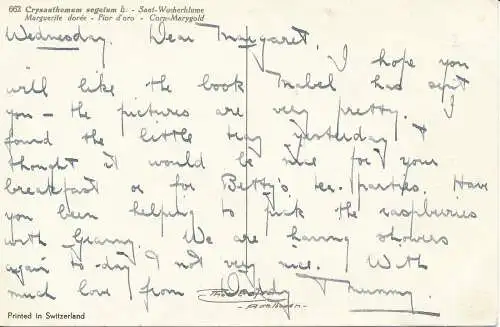 662 Crysanthemum segetum L. - Saat-Wucherblume
Marguerite dorée - Fior d'oro - Corn-Marygold
Wednesday. Dear Margaret,
I hope you
will like the book Mabel has sent
you - the pictures are very pretty. I
found the little tray yesterday &
thought it would be nice for your
breakfast or for Betty's tea-parties. Have
you been helping to pick the raspberries
with Granny. We are having showers
again to-day & not very nice. With
much love from Daddy & Mummy
Printed in Switzerland